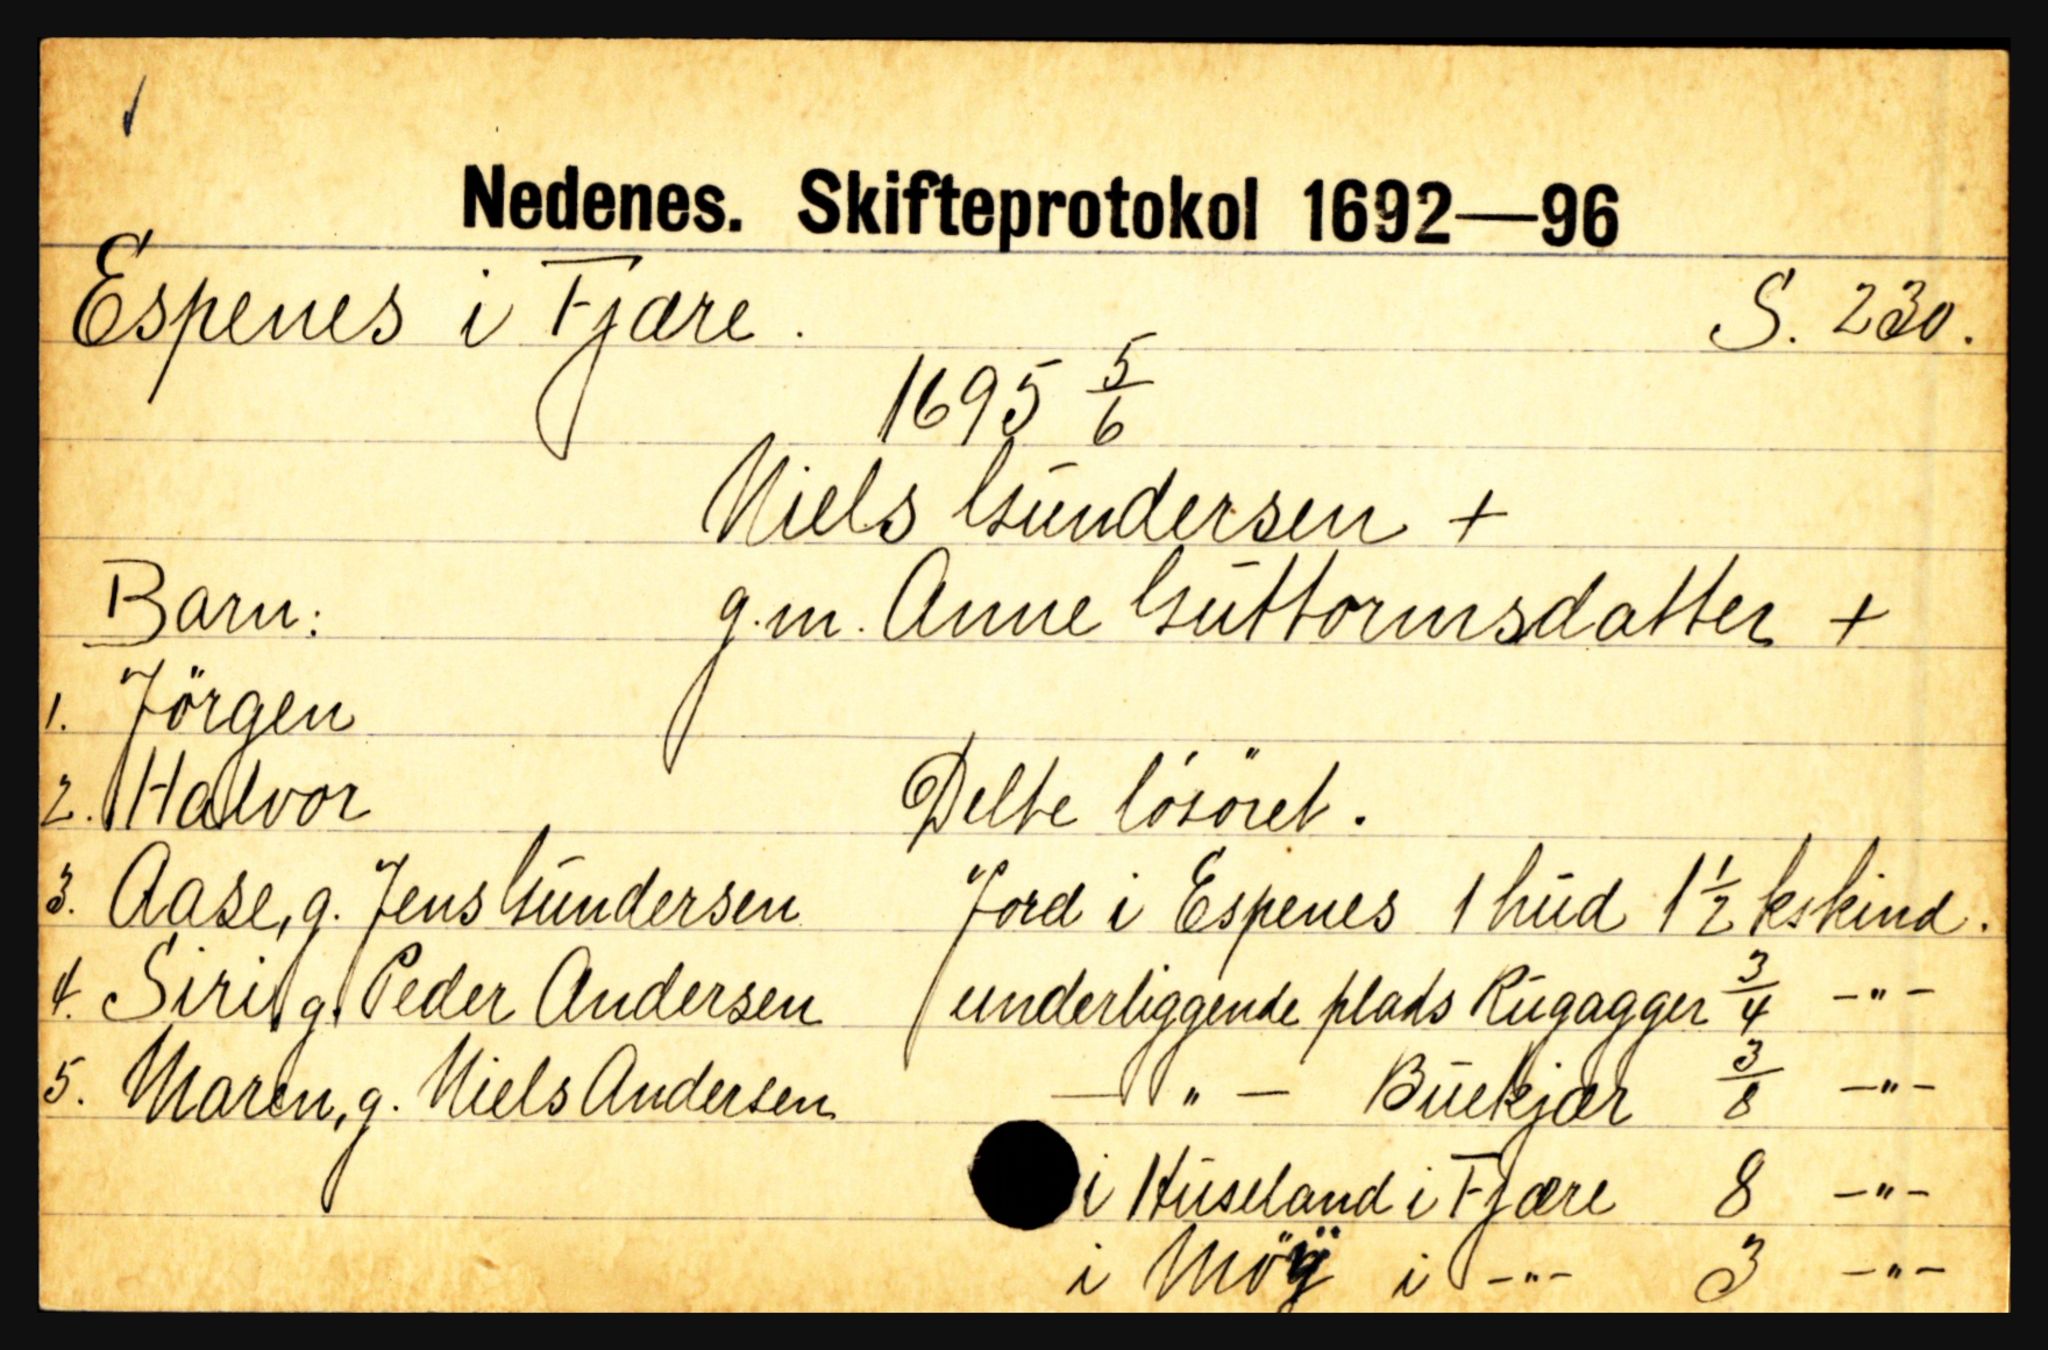 Nedenes. Skifteprotokol 1692—96
Espenes i Fjære. S. 230.
1695 5/6
Niels Gundersen +
Barn: g.m. Anne Guttormsdatter +
1. Jörgen
2. Halvor Delte lösöret.
3. Aase, g. Jens Gundersen Jord i Espenes 1 hud 1 1/2 kskind.
4. Siri, g. Peder Andersen underliggende plads Rugagger 3/4 -"-
5. Maren, g. Niels Andersen - " - Buekjær 3/8 -"-
i Huseland i Fjære 8 -"-
i Möÿ i -"- 3 -"-